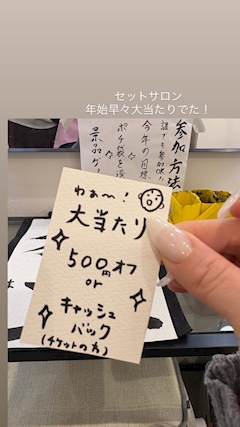 セットサロン
年始早々大当たりでた！
参加方法
誰でも参加OK
今年の目標
々
ポチ袋を選
々
景品ゲ
わぁ〜！
大当たり
500円オフ
or
キャッシュ
バック
(チケットの方)